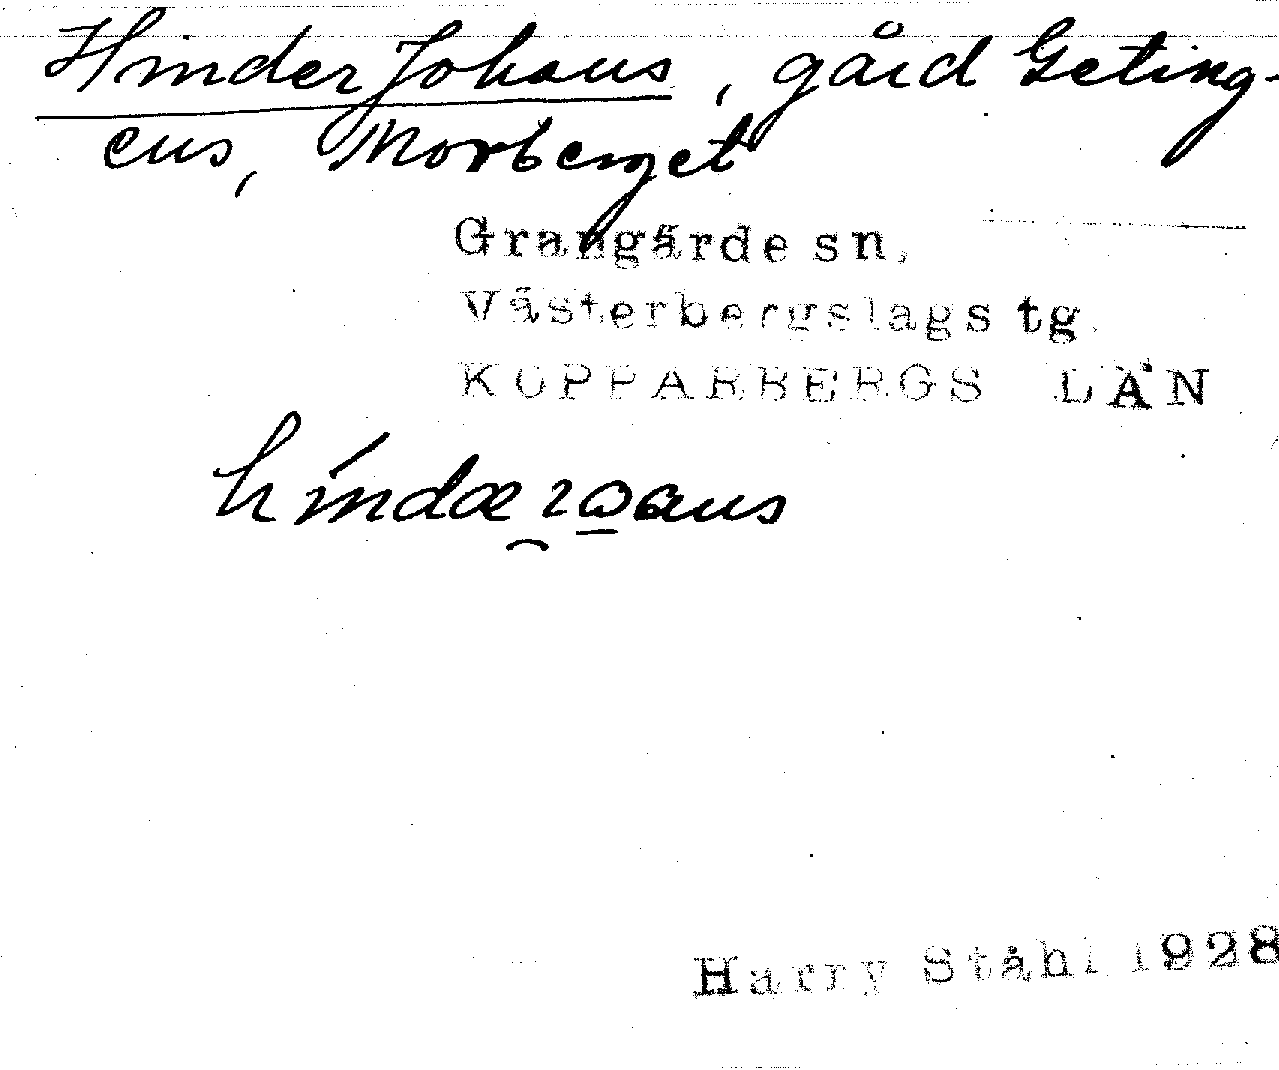 HinderJohans, gård Geting-
ens, Norberget
Grangärde sn.
Västerbergslags tg.
KOPPARBERGS LÄN
híndærωans
Harry Ståhl 1928